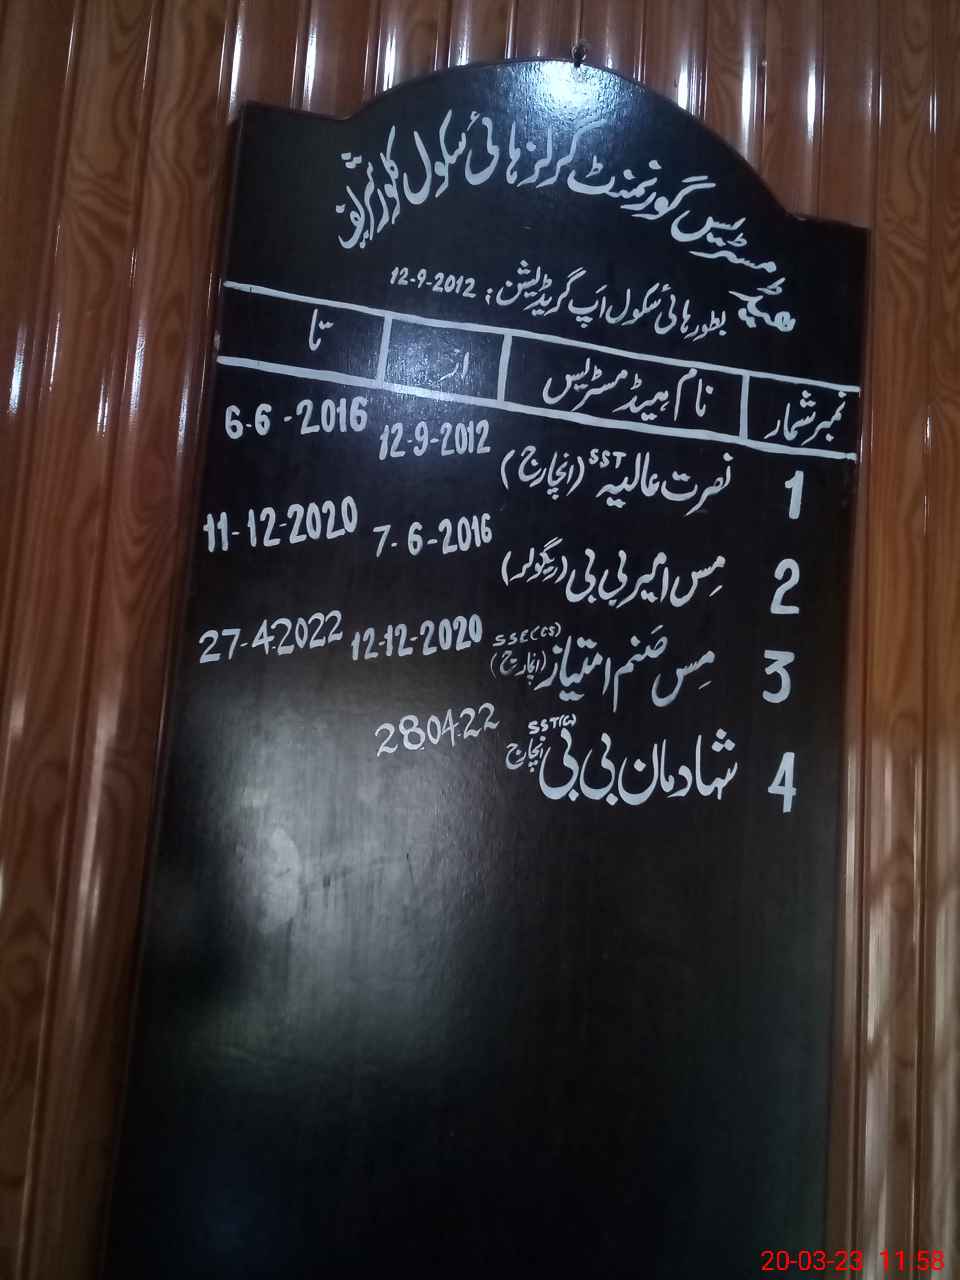 ہیڈ مسٹریس گورنمنٹ گرلز ہائی سکول
بطور ہائی سکول اَپ گریڈیشن: 12-9-2012
نمبر شمار نام ہیڈ مسٹریس از تا
1 نصرت عالیہ SST (انچارج) 12-9-2012 6-6-2016
2 مِس امیر بی بی (ریگولر) 7-6-2016 11-12-2020
3 مِس صَنم امتیاز SSE(CS) (انچارج) 12-12-2020 27-4-2022
4 شہادمان بی بی SST(G) انچارج 28.04.22
20-03-23 11:58